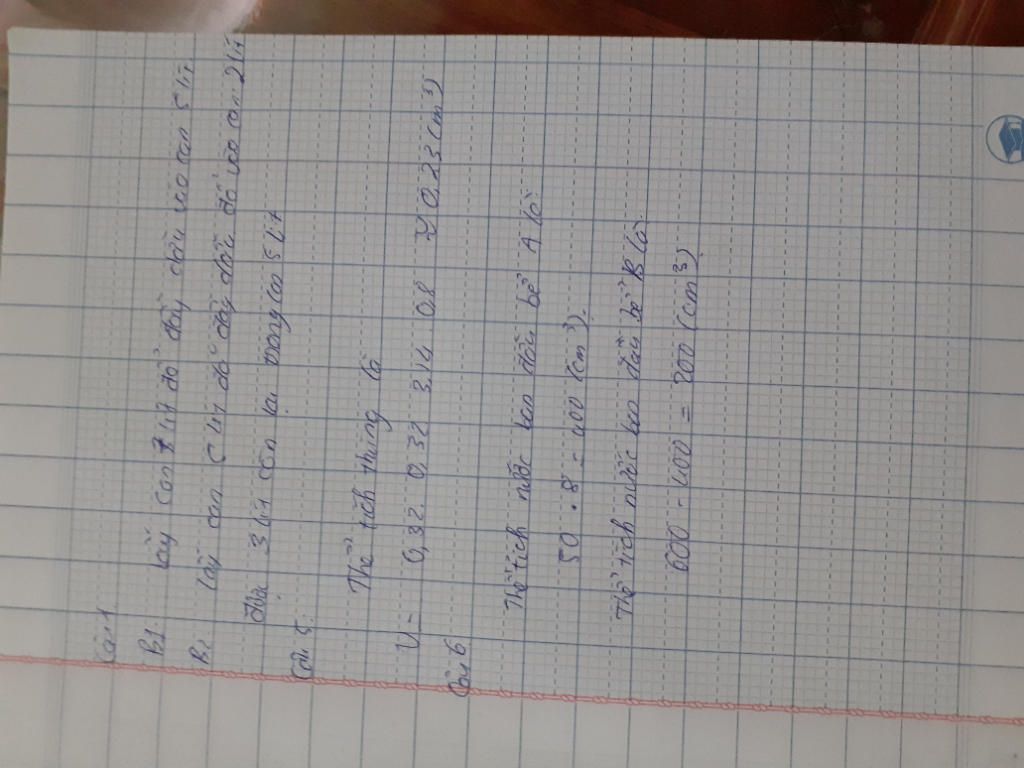 Câu 4
B1 Lấy can 7 lít đổ đầy dầu vào can 5 lít
B2 Lấy can 5 lít đổ đầy dầu đổ vào can 2 lít
được 3 lít còn lại trong can 5 lít
Câu 5.
Thể tích thùng là
V = 0,32 0,32 3,14 0,8 ≈ 0,23 (m³)
Câu 6
Thể tích nước ban đầu bể A là
50 . 8 = 400 (cm³).
Thể tích nước ban đầu bể B là
600 - 400 = 200 (cm³)